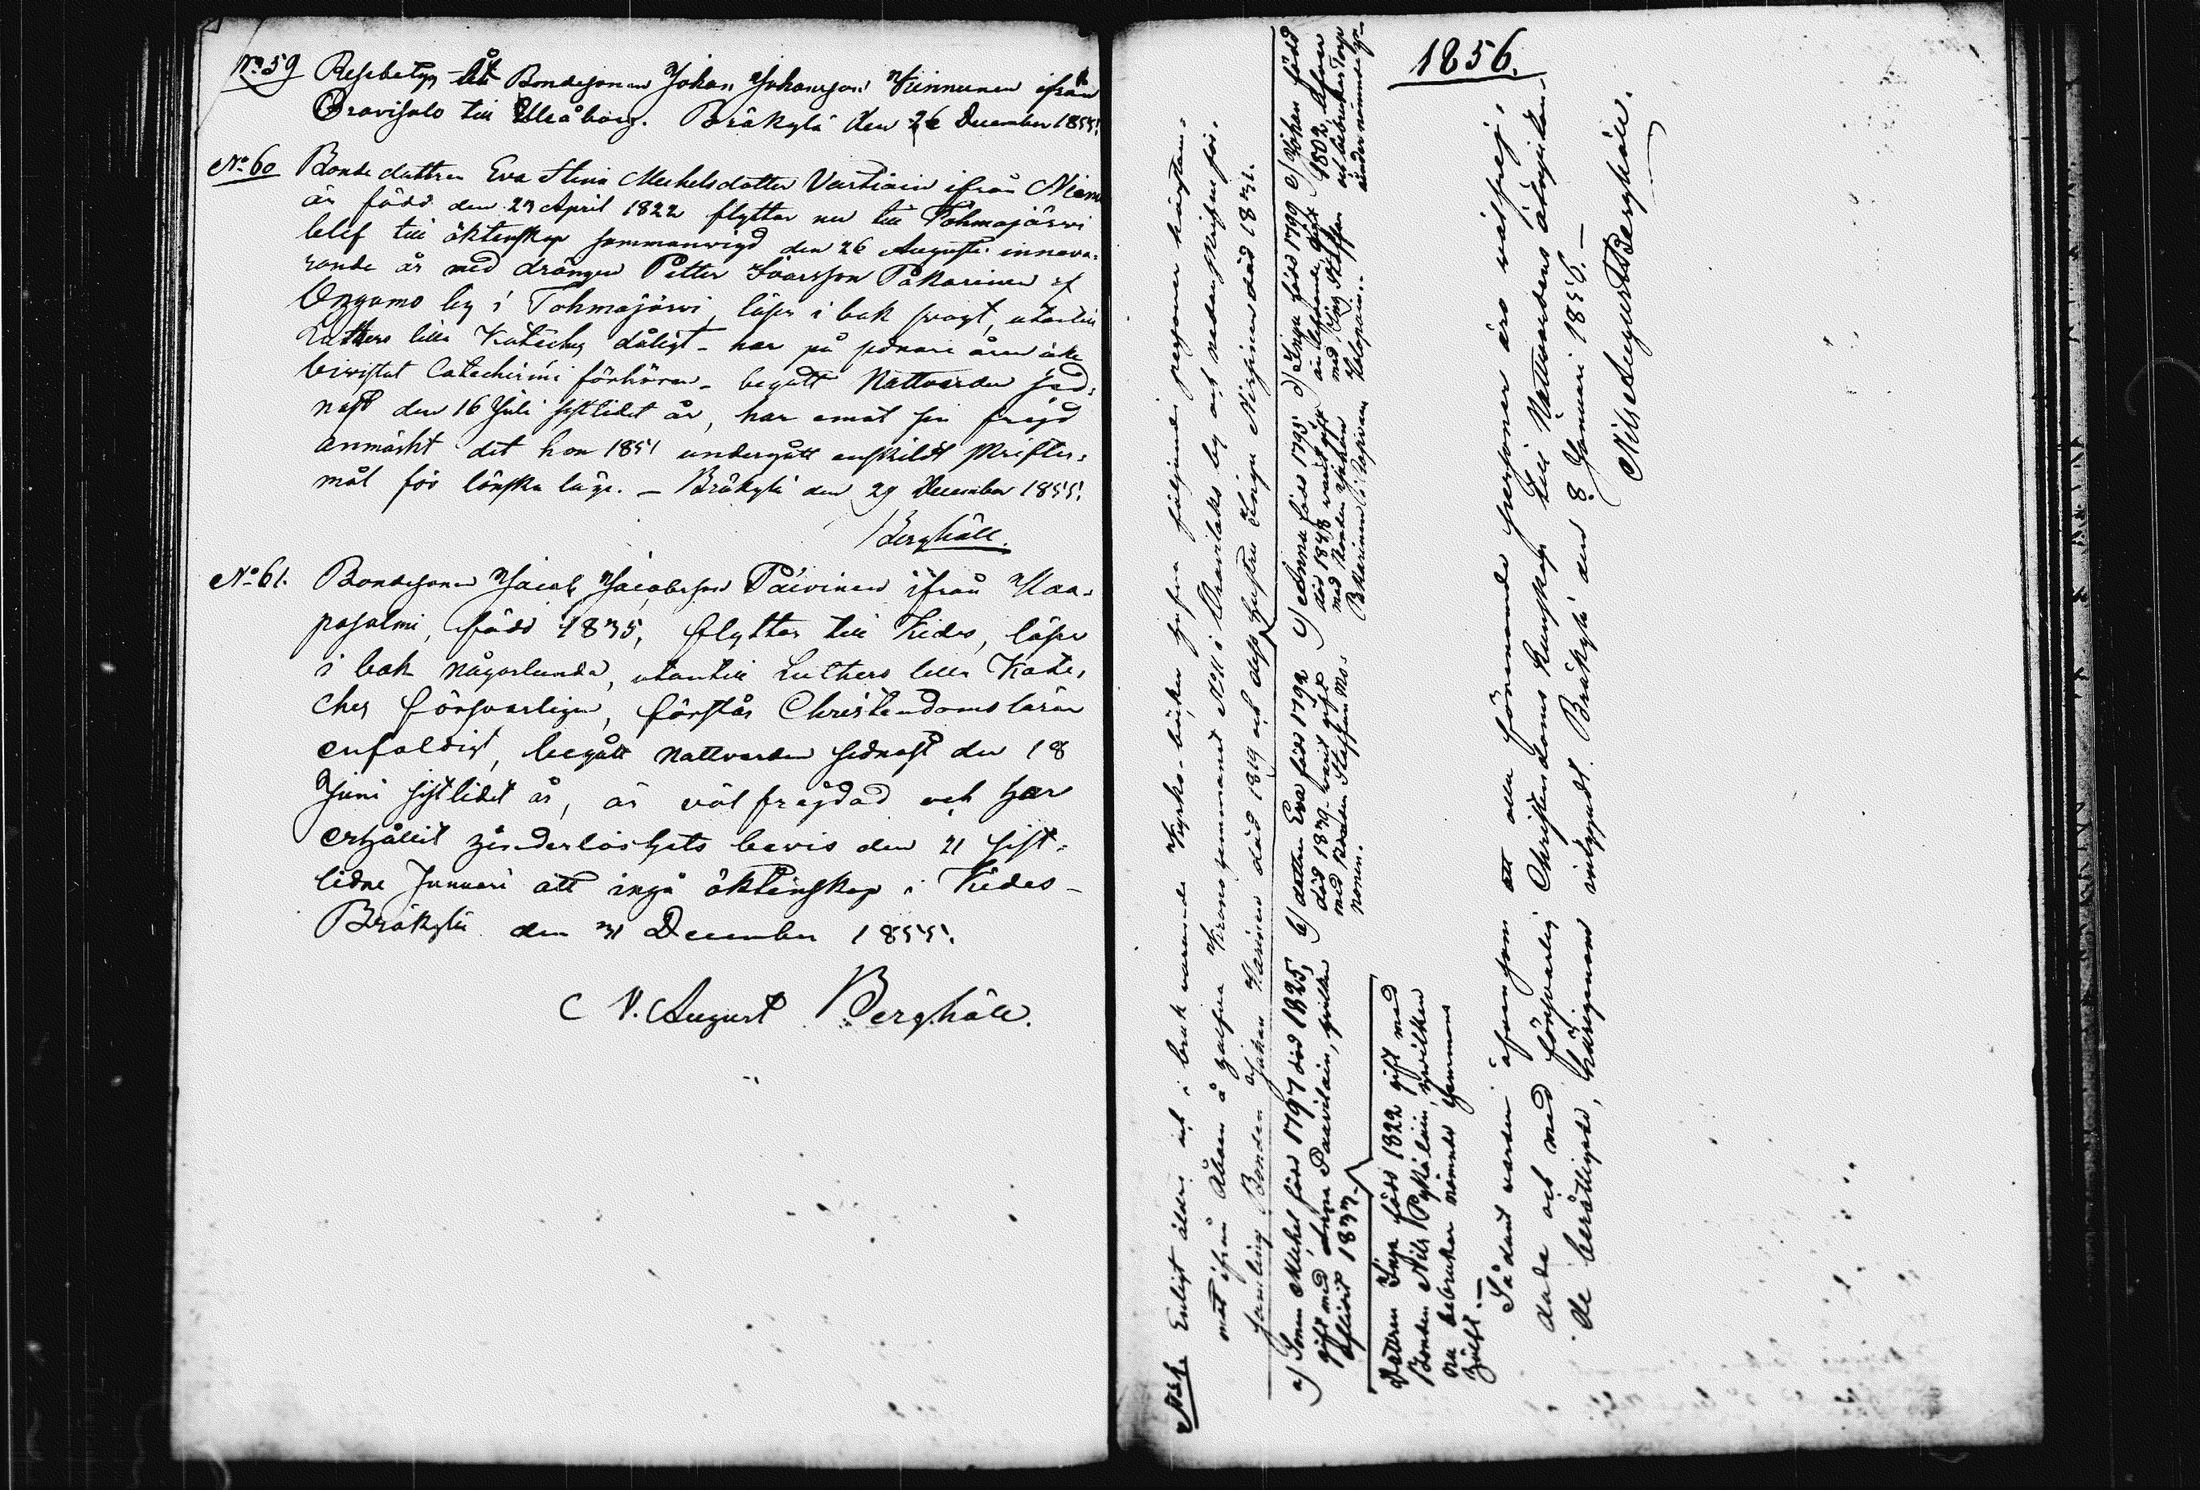 No 59 Resebetyg åt Bondesonen Johan Johansson Kinnunen ifrån
Oravisalo till Uleåborg. Bräkylä den 26 December 1855.
No 60 Bonde dottren Eva Stina Michelsdotter Vartiain ifrån
är född den 23 April 1822 flyttar nu till Tohmajärvi
blef till äktenskap sammanvigd den 26 Augusti inneva-
rande år med drängen Petter Ivarsson Pakarinen af
Onkamo by i Tohmajärvi, läser i bok svagt, utantill
Luthers lilla Kateches dåligt - har på senare åren icke
bivistat Catechismi förhören - begått Nattvarden sed-
nast den 16 Juli sistlidet år, har emot sin frejd
anmärkt det hon 1851 undergått enskildt skrifter-
mål för lönska läge. - Bräkylä den 29 December 1855.
Berghäll.
No 61. Bondesonen Jacob Jacobsson Päivinen ifrån Haa-
pasalmi, född 1835, flyttar till Kides, läser
i bok någorlunda, utantill Luthers lilla Kate-
ches försvarligen, förstår Christendomsläran
enfaldigt, begått nattvarden sednast den 18
Juni sistlidet år, är väl frejdad och har
erhållit hinderlöshets bevis den 21 sist-
lidne Januari att ingå äktenskap i Kides -
Bräkylä den 31 December 1855.
N. August Berghäll.
1856.
Enligt äldre och i bruk varande Kyrko-böcker hafva följande personer härstam-
mat ifrån Åboen å halfva Kronohemmanet No 11 i Oravilaks by och nedanskrifne för-
samling Bonden Johan Karinen död 1819 och dess hustru Inga Nissinen död 1831.
a) Sonen Michel född 1797 död 1825,
gift med Anna Paavilain, hvilken
aflidit 1833.
b) dottren Eva född 1792
död 1830 varit gift
med Bonden Staffan Mo-
nonen.
c) Anna född 1795
död 1848 varit gift
med Bonden Johan
Pakarinen i Taipivaara
d) Inga född 1799
är lefvande gift
med Inh Staffan
Holopain.
e) Johan född
1802, lefver
och bebrukar Torp
under nämnde
Dottren Inga född 1822 gift med
Bonden Nils Pykäläin, hvilken
nu bebrukar nämnde hemmans
hälft.
Sådant varder äfvensom att alla förenämnde personer äro väl frej-
dade och med försvarlig Christendoms kunskap till Nattvardens åtnjutan-
de berättigade, härigenom intygadt. Bräkylä den 8 Januari 1856. -
Nils August Berghäll.